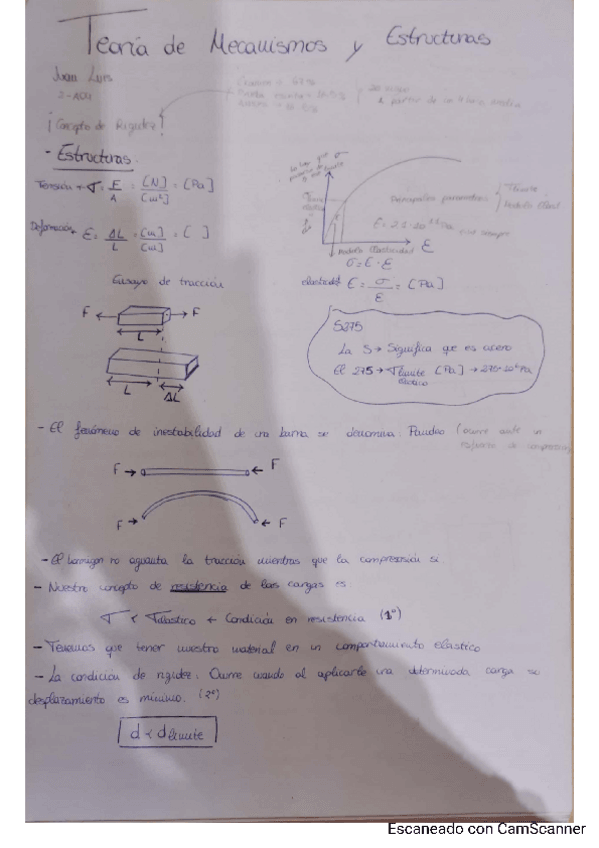 Teoría de Mecanismos y Estructuras
Juan Luis
¡Concepto de Rigidez!
- Estructuras.
Tensión → σ = F/A = [N]/[m²] = [Pa]
Deformación → ε = ΔL/L = [m]/[m] = [ ]
Ensayo de tracción
F F
L
L ΔL
Módulo Elasticidad ε
σ = E · ε
elasticidad E = σ/ε = [Pa]
S275
La S → Significa que es acero
El 275 → σ límite elástico [Pa] → 275·10⁶ Pa
- El fenómeno de inestabilidad de una barra se denomina: Pandeo (ocurre ante un esfuerzo de compresión)
F F
F F
- El hormigon no aguanta la tracción mientras que la compresión si
- Nuestro concepto de resistencia de las cargas es:
σ < σelástico ← Condición en resistencia (1º)
- Tenemos que tener nuestro material en un comportamiento elastico
- La condición de rigidez. Ocurre cuando al aplicarle una determinada carga su
desplazamiento es mínimo. (2º)
d < dlímite
Escaneado con CamScanner